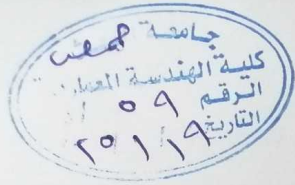 جامعة حمص
كلية الهندسة المعمارية
الرقم ٥٩
التاريخ ٢٥/١/١٩